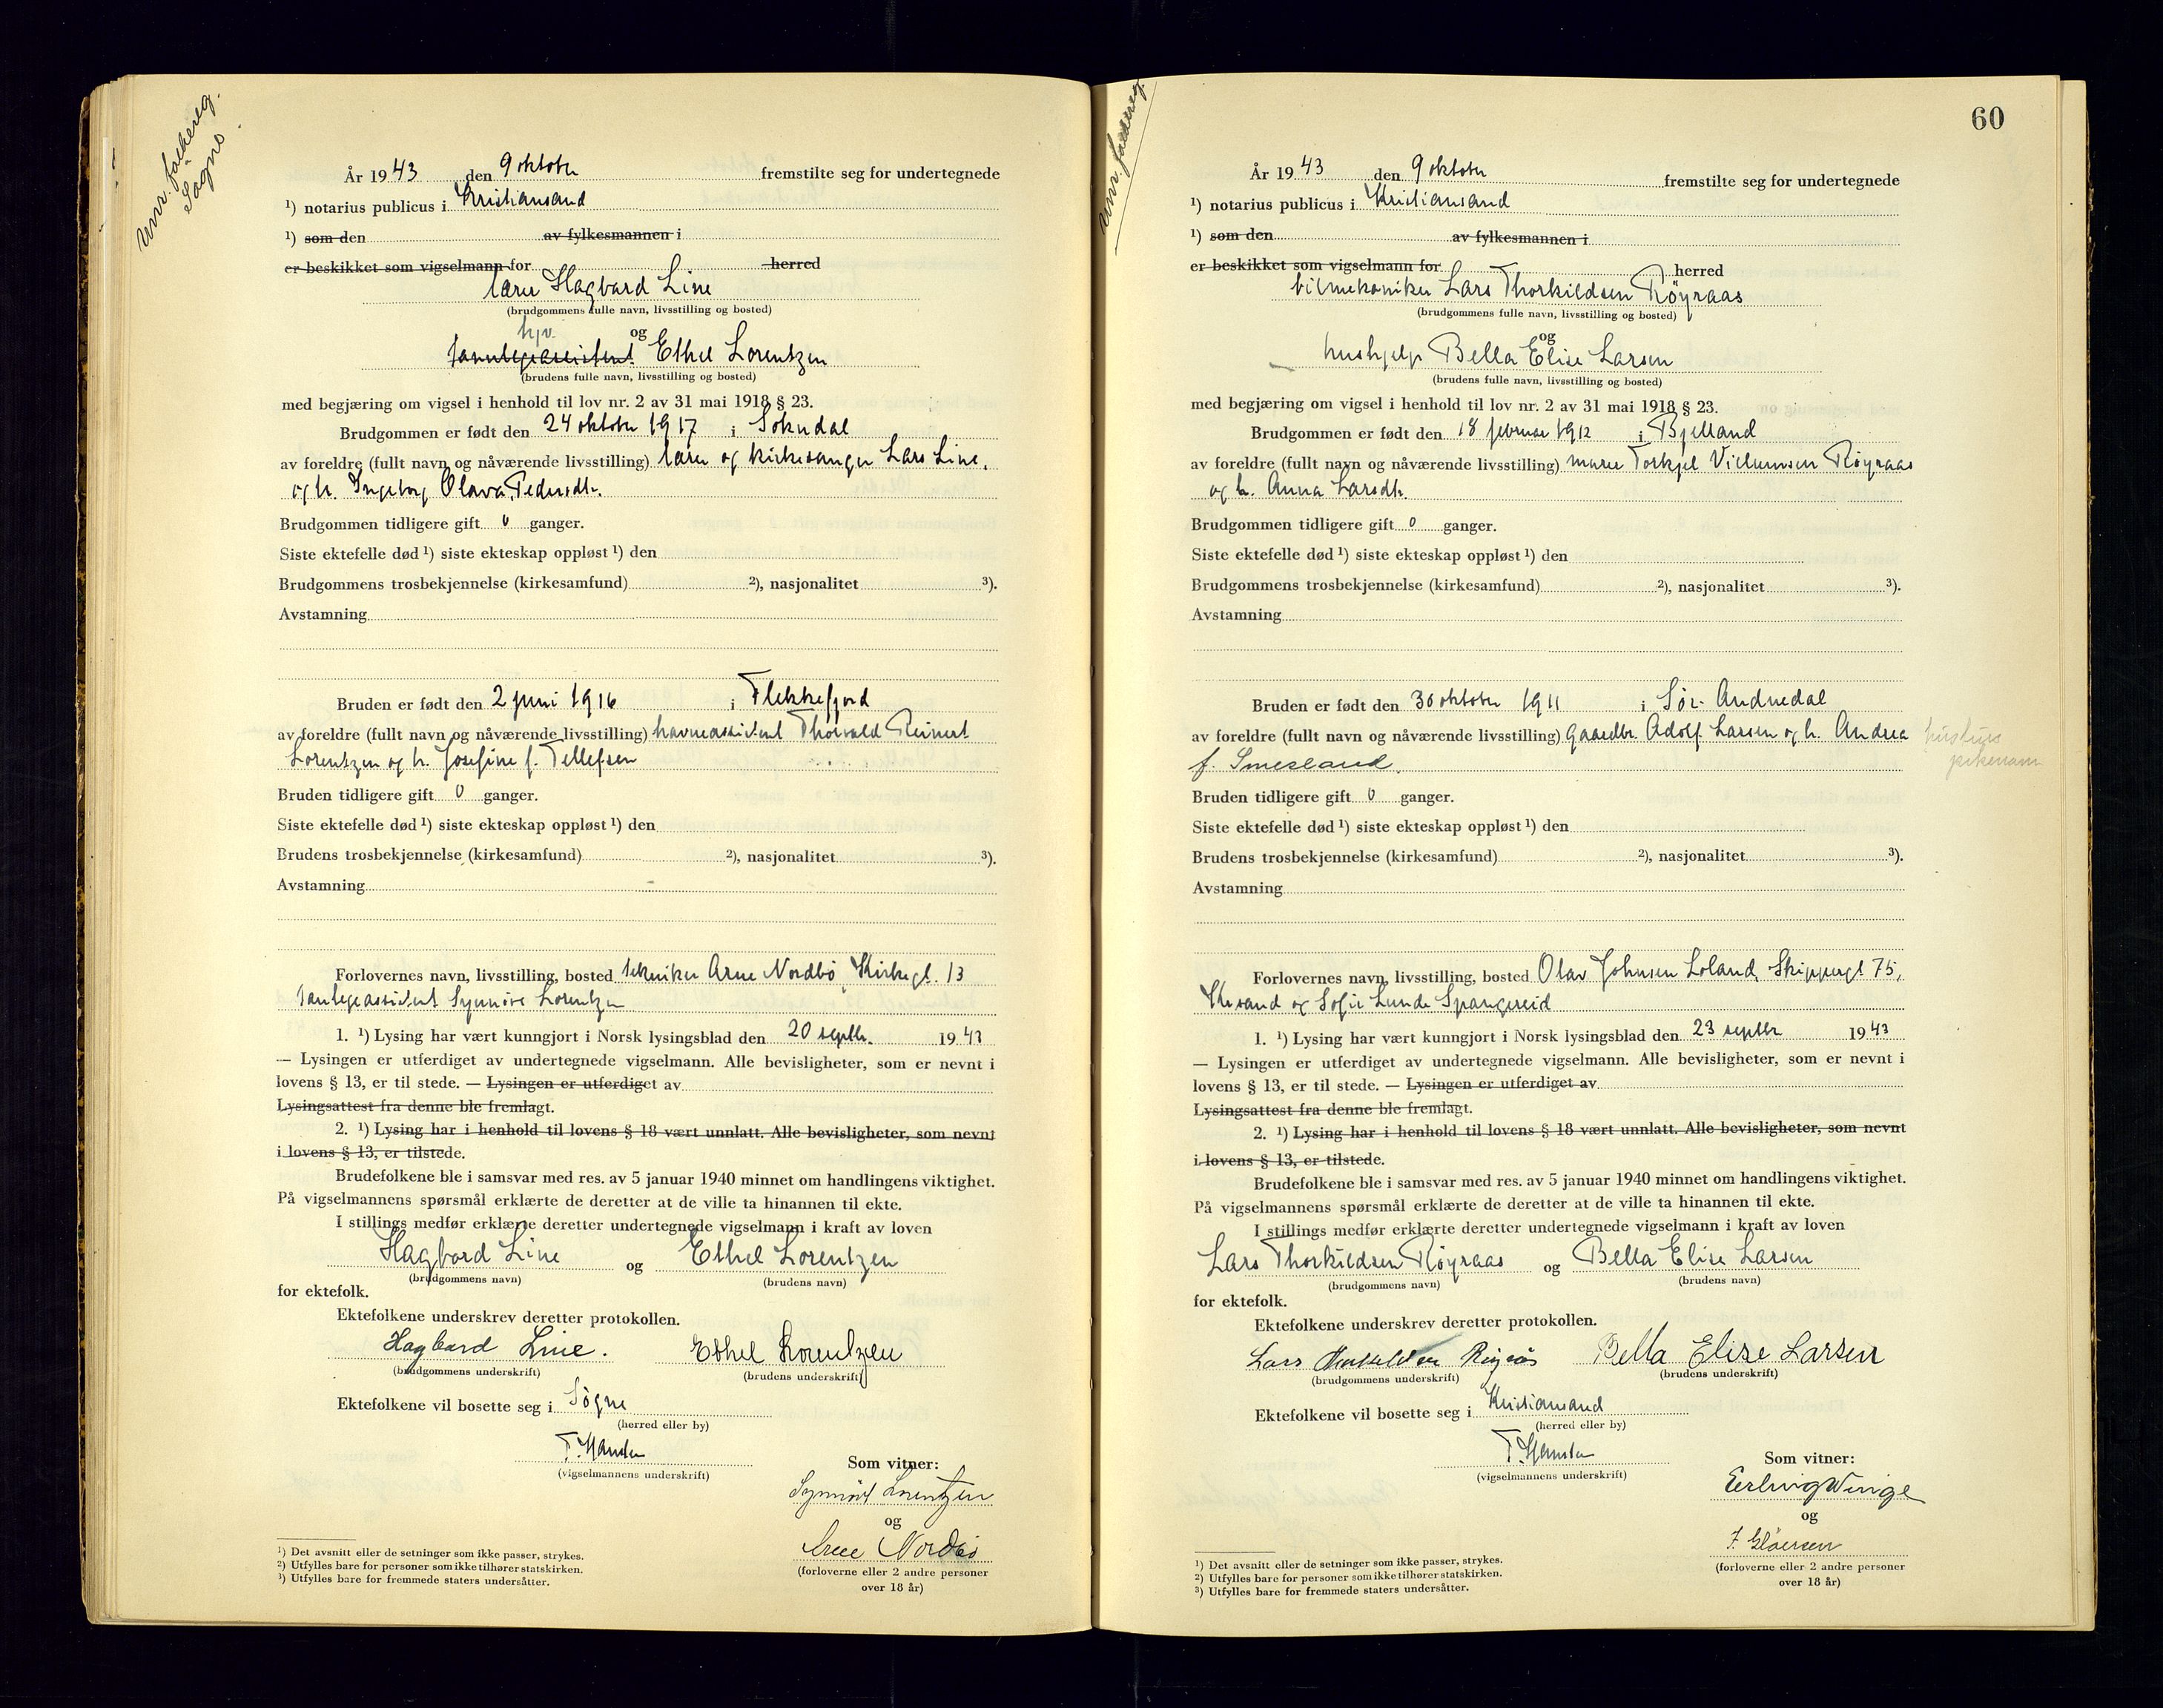 Unr. folkereg.
Søgne
År 1943 den 9 oktober fremstilte seg for undertegnede
¹) notarius publicus i Kristiansand
¹) som den av fylkesmannen i
er beskikket som vigselmann for herred
lærer Hagbard Line
(brudgommens fulle navn, livsstilling og bosted)
hjv. og
tannlegeassistent Ethel Lorentzen
(brudens fulle navn, livsstilling og bosted)
med begjæring om vigsel i henhold til lov nr. 2 av 31 mai 1918 § 23.
Brudgommen er født den 24 oktober 1917 i Sokndal
av foreldre (fullt navn og nåværende livsstilling) lærer og kirkesanger Lars Line,
og h. Ingeborg Olava Pedersdtr.
Brudgommen tidligere gift 0 ganger.
Siste ektefelle død ¹) siste ekteskap oppløst ¹) den
Brudgommens trosbekjennelse (kirkesamfund) ²), nasjonalitet ³).
Avstamning
Bruden er født den 2 juni 1916 i Flekkefjord
av foreldre (fullt navn og nåværende livsstilling) havneassistent Thorvald Reinert
Lorentzen og h. Josefine f. Tellefsen
Bruden tidligere gift 0 ganger.
Siste ektefelle død ¹) siste ekteskap oppløst ¹) den
Brudens trosbekjennelse (kirkesamfund) ²), nasjonalitet ³).
Avstamning
Forlovernes navn, livsstilling, bosted tekniker Arne Nordbö, Kirkegt. 13
tannlegeassistent Synnöve Lorentzen
1. ¹) Lysing har vært kunngjort i Norsk lysingsblad den 20 septbr. 1943
— Lysingen er utferdiget av undertegnede vigselmann. Alle bevisligheter, som er nevnt i
lovens § 13, er til stede. — Lysingen er utferdiget av
Lysingsattest fra denne ble fremlagt.
2. ¹) Lysing har i henhold til lovens § 18 vært unnlatt. Alle bevisligheter, som nevnt
i lovens § 13, er tilstede.
Brudefolkene ble i samsvar med res. av 5 januar 1940 minnet om handlingens viktighet.
På vigselmannens spørsmål erklærte de deretter at de ville ta hinannen til ekte.
I stillings medfør erklærte deretter undertegnede vigselmann i kraft av loven
Hagbard Line og Ethel Lorentzen
(brudgommens navn) (brudens navn)
for ektefolk.
Ektefolkene underskrev deretter protokollen.
Hagbard Line. Ethel Lorentzen
(brudgommens underskrift) (brudens underskrift)
Ektefolkene vil bosette seg i Søgne
(herred eller by)
T. Hansen
(vigselmannens underskrift)
Som vitner:
Synnöve Lorentzen
og
Arne Nordbö
(forloverne eller 2 andre personer
over 18 år)
¹) Det avsnitt eller de setninger som ikke passer, strykes.
²) Utfylles bare for personer som ikke tilhører statskirken.
³) Utfylles bare for fremmede staters undersåtter.
60
Unr. folkereg.
År 1943 den 9 oktober fremstilte seg for undertegnede
¹) notarius publicus i Kristiansand
¹) som den av fylkesmannen i
er beskikket som vigselmann for herred
bilmekaniker Lars Thorkildsen Röyraas
(brudgommens fulle navn, livsstilling og bosted)
og
hushjelp Bella Elise Larsen
(brudens fulle navn, livsstilling og bosted)
med begjæring om vigsel i henhold til lov nr. 2 av 31 mai 1918 § 23.
Brudgommen er født den 18 februar 1912 i Bjelland
av foreldre (fullt navn og nåværende livsstilling) murer Torkjel Villumsen Röyraas
og h. Anna Larsdtr.
Brudgommen tidligere gift 0 ganger.
Siste ektefelle død ¹) siste ekteskap oppløst ¹) den
Brudgommens trosbekjennelse (kirkesamfund) ²), nasjonalitet ³).
Avstamning
Bruden er født den 30 oktober 1911 i Sør-Audnedal
av foreldre (fullt navn og nåværende livsstilling) gaardbr. Adolf Larsen og h. Andrea
hustrus
pikenavn
f. Smesland.
Bruden tidligere gift 0 ganger.
Siste ektefelle død ¹) siste ekteskap oppløst ¹) den
Brudens trosbekjennelse (kirkesamfund) ²), nasjonalitet ³).
Avstamning
Forlovernes navn, livsstilling, bosted Olav Johnsen Loland, Skippergt 75,
Krsand og Sofie Lunde Spangereid
1. ¹) Lysing har vært kunngjort i Norsk lysingsblad den 23 septbr 1943
— Lysingen er utferdiget av undertegnede vigselmann. Alle bevisligheter, som er nevnt i
lovens § 13, er til stede. — Lysingen er utferdiget av
Lysingsattest fra denne ble fremlagt.
2. ¹) Lysing har i henhold til lovens § 18 vært unnlatt. Alle bevisligheter, som nevnt
i lovens § 13, er tilstede.
Brudefolkene ble i samsvar med res. av 5 januar 1940 minnet om handlingens viktighet.
På vigselmannens spørsmål erklærte de deretter at de ville ta hinannen til ekte.
I stillings medfør erklærte deretter undertegnede vigselmann i kraft av loven
Lars Thorkildsen Röyraas og Bella Elise Larsen
(brudgommens navn) (brudens navn)
for ektefolk.
Ektefolkene underskrev deretter protokollen.
Lars Thorkildsen Röyrås Bella Elise Larsen
(brudgommens underskrift) (brudens underskrift)
Ektefolkene vil bosette seg i Kristiansand
(herred eller by)
T. Hansen
(vigselmannens underskrift)
Som vitner:
Erling Winge
og
(forloverne eller 2 andre personer
over 18 år)
¹) Det avsnitt eller de setninger som ikke passer, strykes.
²) Utfylles bare for personer som ikke tilhører statskirken.
³) Utfylles bare for fremmede staters undersåtter.